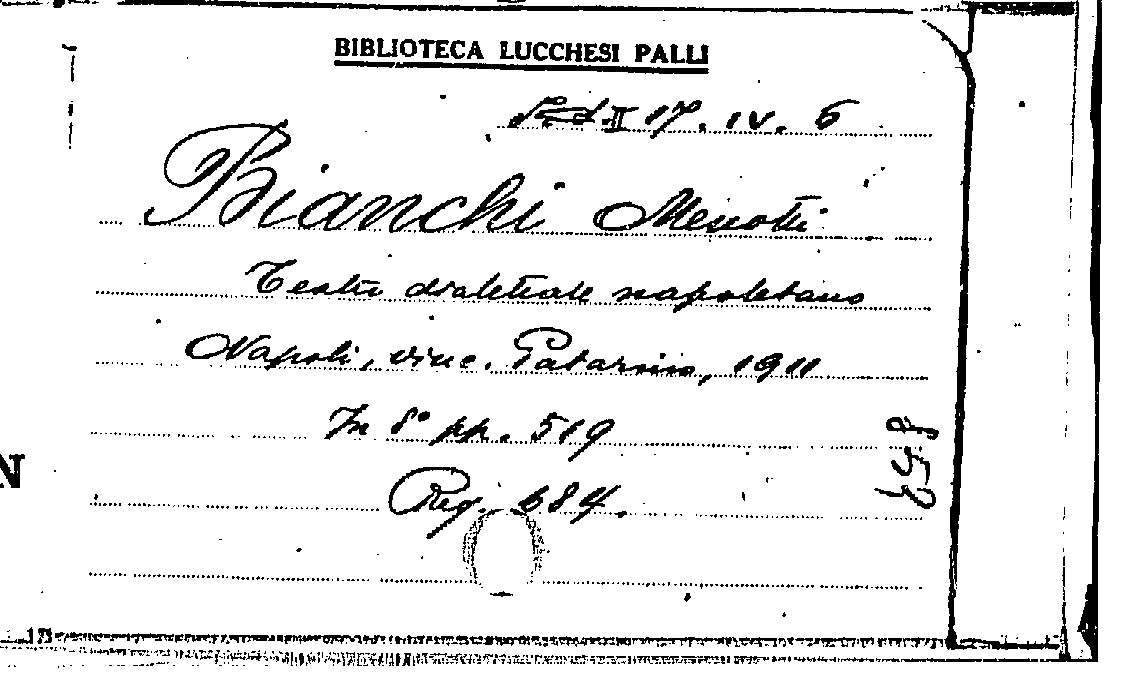 BIBLIOTECA LUCCHESI PALLI
II 17. IV. 6
Bianchi Menotti
Teatro dialettale napoletano
Napoli, vinc. Patarino, 1911
In 8° pp. 519
Reg. 684.
N